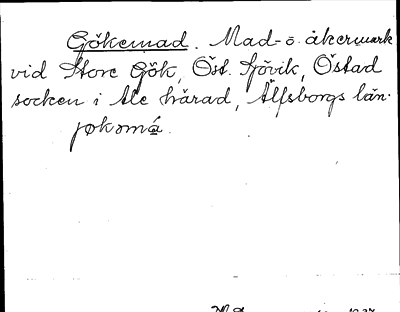 Gökemad. Mad- o. åkermark
vid Store Gök, Öst. Sjövik, Östad
socken i Ale härad, Älfsborgs län.
jøkəmá.